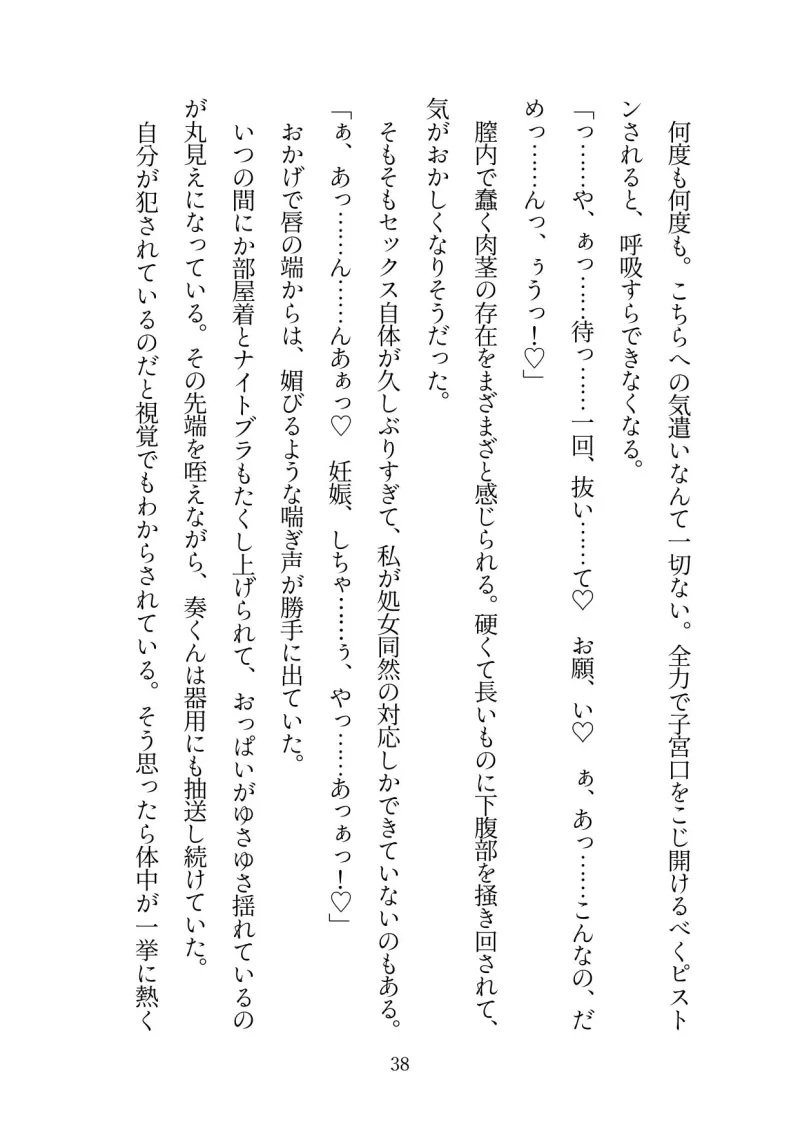 何度も何度も。こちらへの気遣いなんて一切ない。全力で子宮口をこじ開けるべくピスト
ンされると、呼吸すらできなくなる。
「っ……や、ぁっ……待っ……一回、抜い……て♡　お願、い♡　ぁ、あっ……こんなの、だ
めっ……んっ、ぅうっ！♡」
膣内で蠢く肉茎の存在をまざまざと感じられる。硬くて長いものに下腹部を掻き回されて、
気がおかしくなりそうだった。
そもそもセックス自体が久しぶりすぎて、私が処女同然の対応しかできていないのもある。
「ぁ、あっ……ん……んあぁっ♡　妊娠、しちゃ……ぅ、やっ……あっぁっ！♡」
おかげで唇の端からは、媚びるような喘ぎ声が勝手に出ていた。
いつの間にか部屋着とナイトブラもたくし上げられて、おっぱいがゆさゆさ揺れているの
が丸見えになっている。その先端を咥えながら、奏くんは器用にも抽送し続けていた。
自分が犯されているのだと視覚でもわからされている。そう思ったら体中が一挙に熱く
38